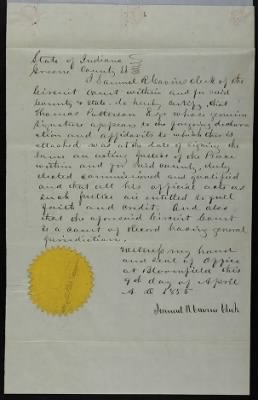 State of Indiana
Greene County SS
I Samuel R Cavins Clerk of the
Circuit Court within and for said
County & State do hereby certify that
Thomas Patterson Esqr whose genuine
signature appears to the forgoing declara
tion and affidavits to which this is
attached was at the date of signing the
same an acting Justice of the Peace
within and for said County, duly
elected commissioned and qualified
and that all his official acts as
such Justice are entitled to full
faith and credit. And also
that the aforesaid Circuit Court
is a court of Record having general
jurisdiction.
Witness my hand
and seal of office
at Bloomfield this
9th day of April
A D 1855
Samuel R Cavins Clerk